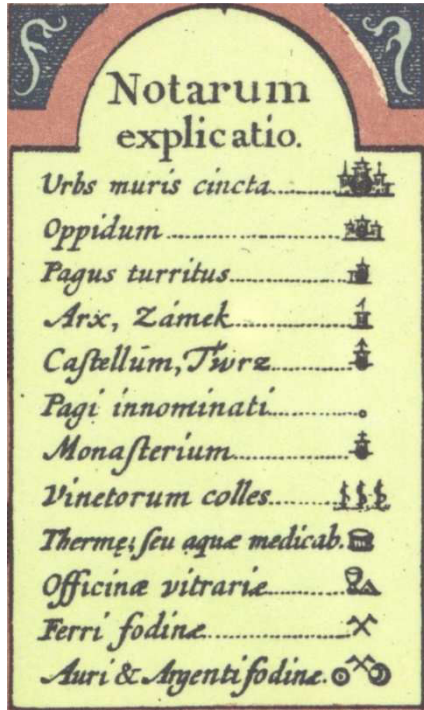 Notarum
explicatio.
Urbs muris cincta
Oppidum
Pagus turritus
Arx, Zámek
Caſtellum, Twrz
Pagi innominati
Monaſterium
Vinetorum colles
Thermę; ſeu aquæ medicab.
Officinæ vitrariæ
Ferri fodinæ
Auri & Argenti fodinæ.